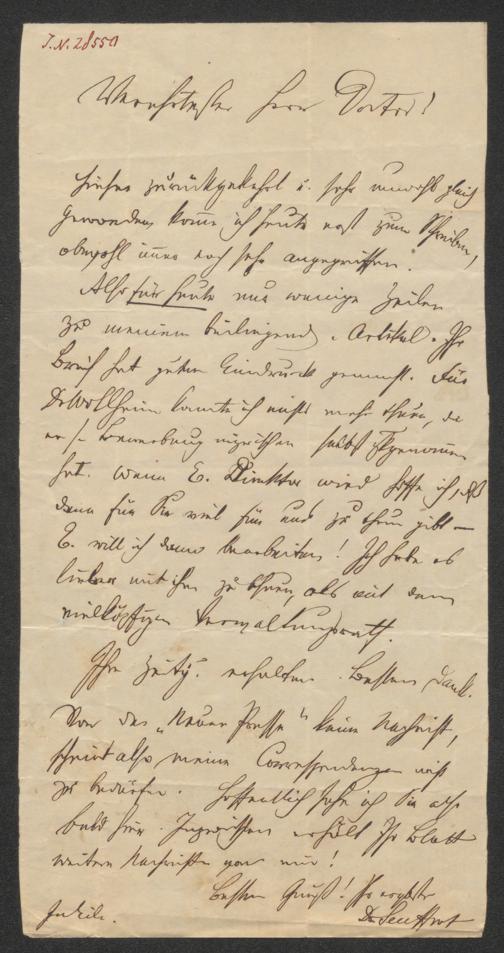 J.N. 28550
Verehrtester Herr Doctor!
Hieher zurückgekehrt u. sehr unwohl gleich
geworden, komme ich heute erst zum Schreiben,
obwohl immer noch sehr angegriffen.
Also für heute nur wenige Zeilen
zu meinem Artikel. Ihr
Brief hat guten Eindruck gemacht. Für
Dr Wollheim konnte ich nichts mehr thun, da
er s/ Bewerbung inzwischen selbst
hat. Wenn E. Direktor wird hoffe ich, daß
dann für Sie viel für uns zu thun gibt —
E. will ich dann bearbeiten! Ich habe es
lieber mit ihm zu thun, als mit dem
vielköpfigen Verwaltungsrath.
Ihre Zeitg. erhalten. Besten Dank.
Von der "Neuen Presse" keine Nachricht,
scheint also meine Correspondenzen nicht
zu bedürfen. Hoffentlich sehe ich Sie also
bald hier. Inzwischen erhält Ihr Blatt
weitere Nachrichten von mir!
Besten Gruß! Ihr ergebster
In Eile. Dr